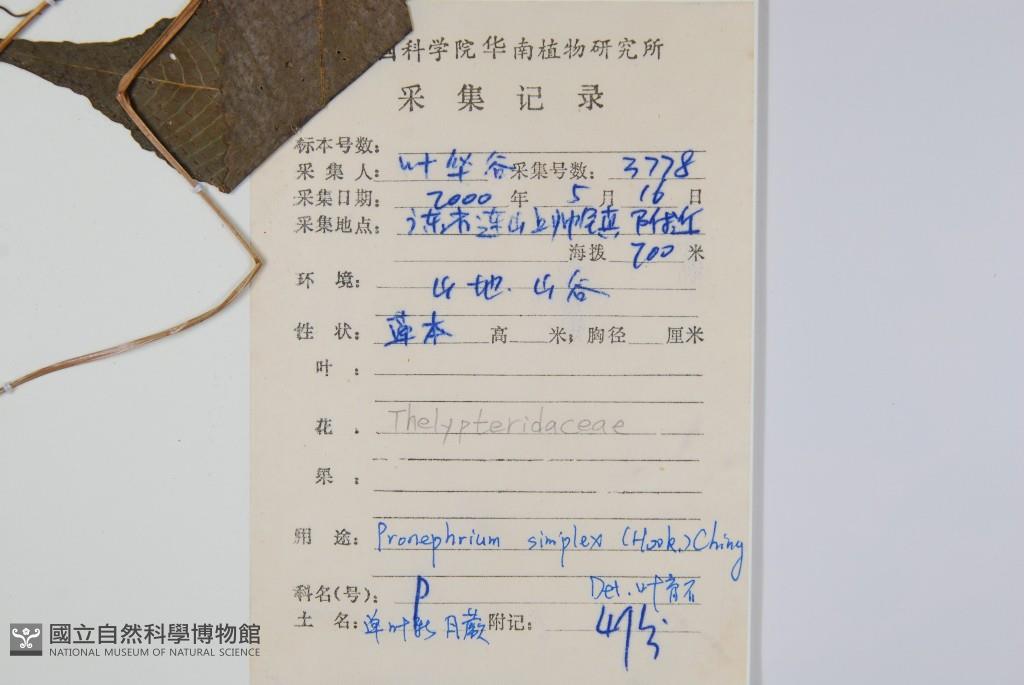 国科学院华南植物研究所
采集记录
标本号数：
采集人：叶华谷 采集号数：3778
采集日期：2000年5月16日
采集地点：连山上帅镇附近
海拨 700 米
环境：山地.山谷
性状：草本 高 米；胸径 厘米
叶：
花：Thelypteridaceae
果：
用途：Pronephrium simplex (Hook.) Ching
科名(号)：P Det. 叶育石
土名：单叶新月蕨 附记：4份
國立自然科學博物館
NATIONAL MUSEUM OF NATURAL SCIENCE